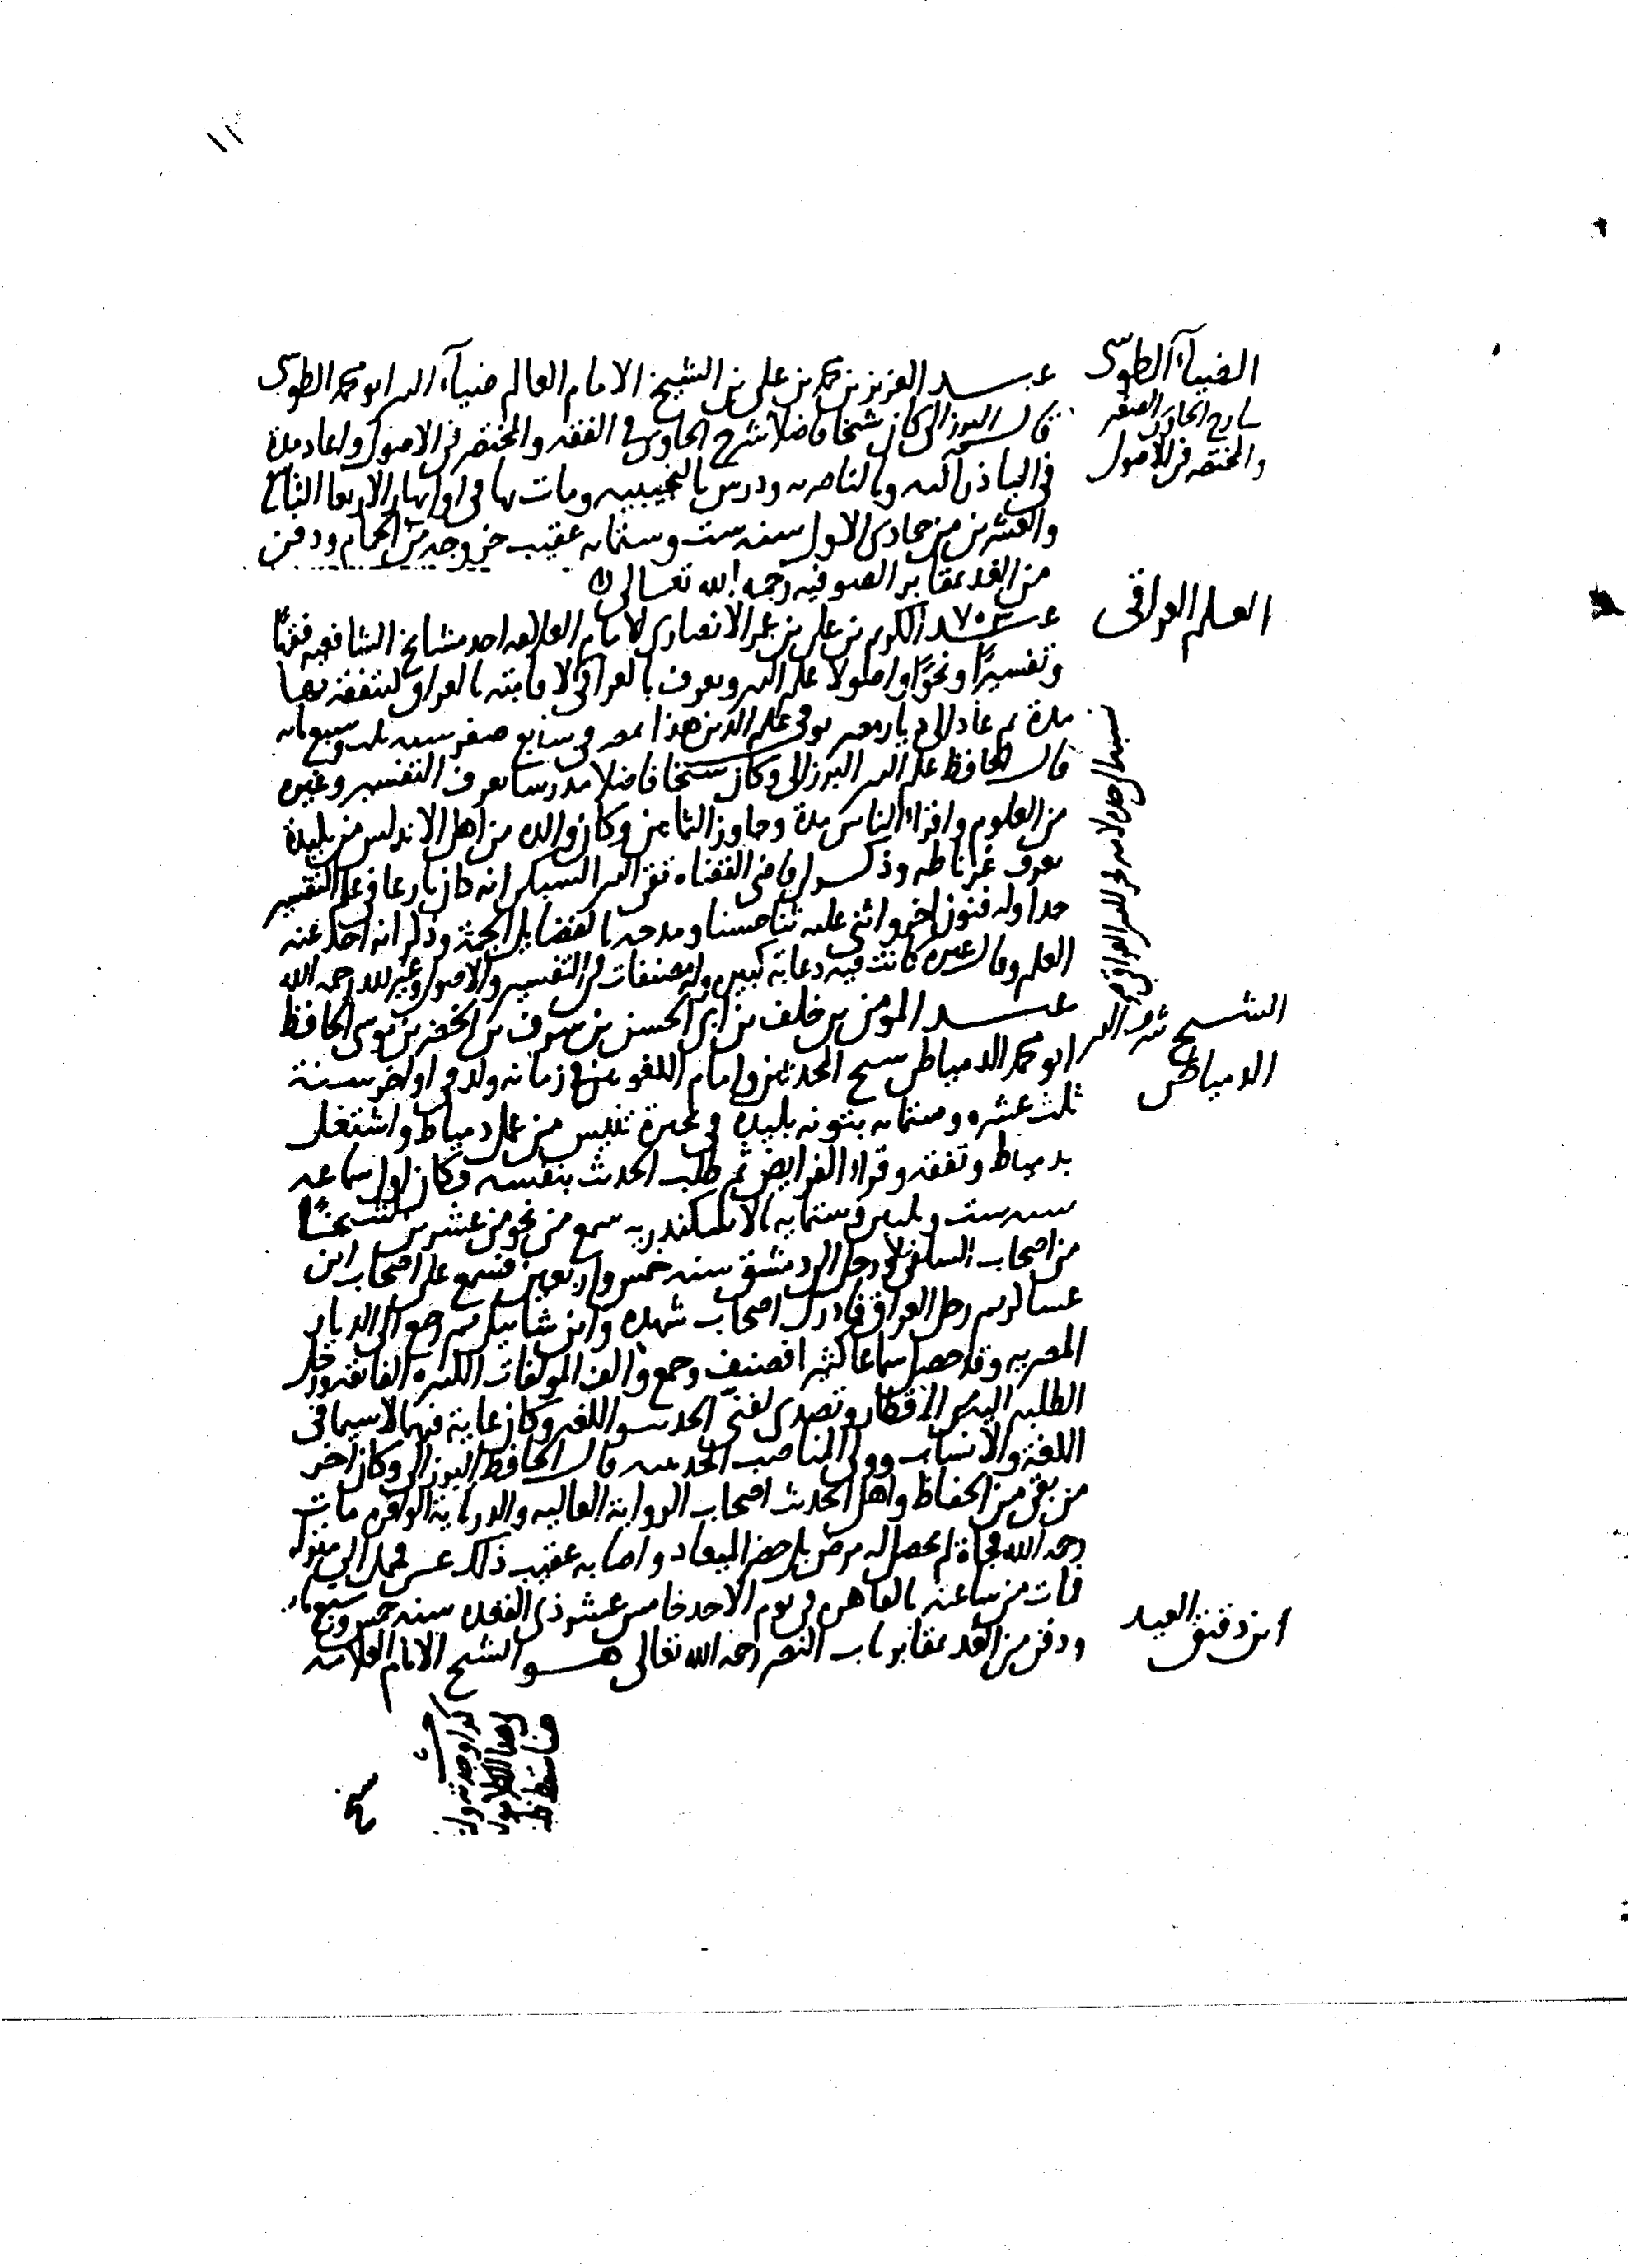 الضياء الطوسى
شارح الحاوى الصغير
والمختصر فى الاصول
عبد العزيز بن محمد بن على بن الشيخ الامام العالم ضياء الدين ابو محمد الطوسى
قال البرزالى كان شيخا فاضلا شرح الحاوى فى الفقه والمختصر فى الاصول واعاد مدة
فى الباذرائيه وبالناصريه ودرس بالنجيبيه ومات بها فى اول نهار الاربعا التاسع
والعشرين من جمادى الاول سنه ست وستمايه عقيب خروجه من الحمام ودفن
من الغد بمقابر الصوفيه رحمه الله تعالى
العلم العراقى
٧٠٣
عبد الكريم بن على بن عمر الانصارى الامام العلامه احد مشايخ الشافعيه فقهًا
وتفسيرًا ونحوًا واصولا علم الدين ويعرف بالعراقى لاقامته بالعراق ليتفقه بها
مدة ثم عاد الى ديار مصر توفى علم الدين هذا بمصر فى سابع صفر سنه ثلث وسبعمايه
قال الحافظ علم الدين البرزالى وكان شيخا فاضلا مدرسا يعرف التفسير وغيره
من العلوم واقراء الناس مدة وجاوز الثمانين وكان والده من اهل الاندلس من بليدة
بقرب غرناطه وذكر لى قاضى القضاه تقى الدين السبكى انه كان بارعا فى علم التفسير
جدا وله فنون اخر واثنى عليه ثنا حسنا ومدحه بالفضايل الجمة وذكر انه اخذ عنه
العلم وقال غيره كانت فيه دعابة كبيره وله مصنفات فى التفسير والاصول وغير ذلك رحمه الله
الشيخ شرف الدين
الدمياطى
عبد المومن بن خلف بن ابى الحسن بن شرف بن الخضر بن موسى الحافظ
ابو محمد الدمياطى شيخ المحدثين وامام اللغويين فى زمانه ولد فى اواخر سنة
ثلث عشره وستمايه بتونه بليدة فى بحيرة تنيس من عمل دمياط واشتغل
بدمياط وتفقه وقراء الفرايض ثم طلب الحديث بنفسه وكان اول سماعه
سنه ست وثلثين وستمايه بالاسكندريه سمع من نحو من عشرين شيخًا
من اصحاب السلفى ورحل الى دمشق سنه خمس واربعين فسمع على اصحاب ابن
عساكر ثم رحل العراق فادرك اصحاب شهده وابن شاتيل ثم رجع الى الديار
المصريه وقد حصل سماعا كثيرا فصنف وجمع والف المولفات الكثيره الفائقه ورحل
الطلبه اليه من الاقطار وتصدى لفنى الحديث واللغه وكان غاية فيهما لاسيما فى
اللغة والانساب وولى المناصب الحديثيه قال الحافظ البرزالى وكان اخر
من بقى من الحفاظ واهل الحديث اصحاب الرواية العاليه والدراية الوافره مات
رحمه الله فجأة لم يحصل له مرض بل حضر الميعاد واصابه عقيب ذلك غشى فحمل الى منزله
فمات من ساعته بالقاهره فى يوم الاحد خامس عشر ذى القعده سنه خمس وسبعمايه
ابن دقيق العيد
ودفن من الغد بمقابر باب النصر رحمه الله تعالى هو الشيخ الامام العلامه